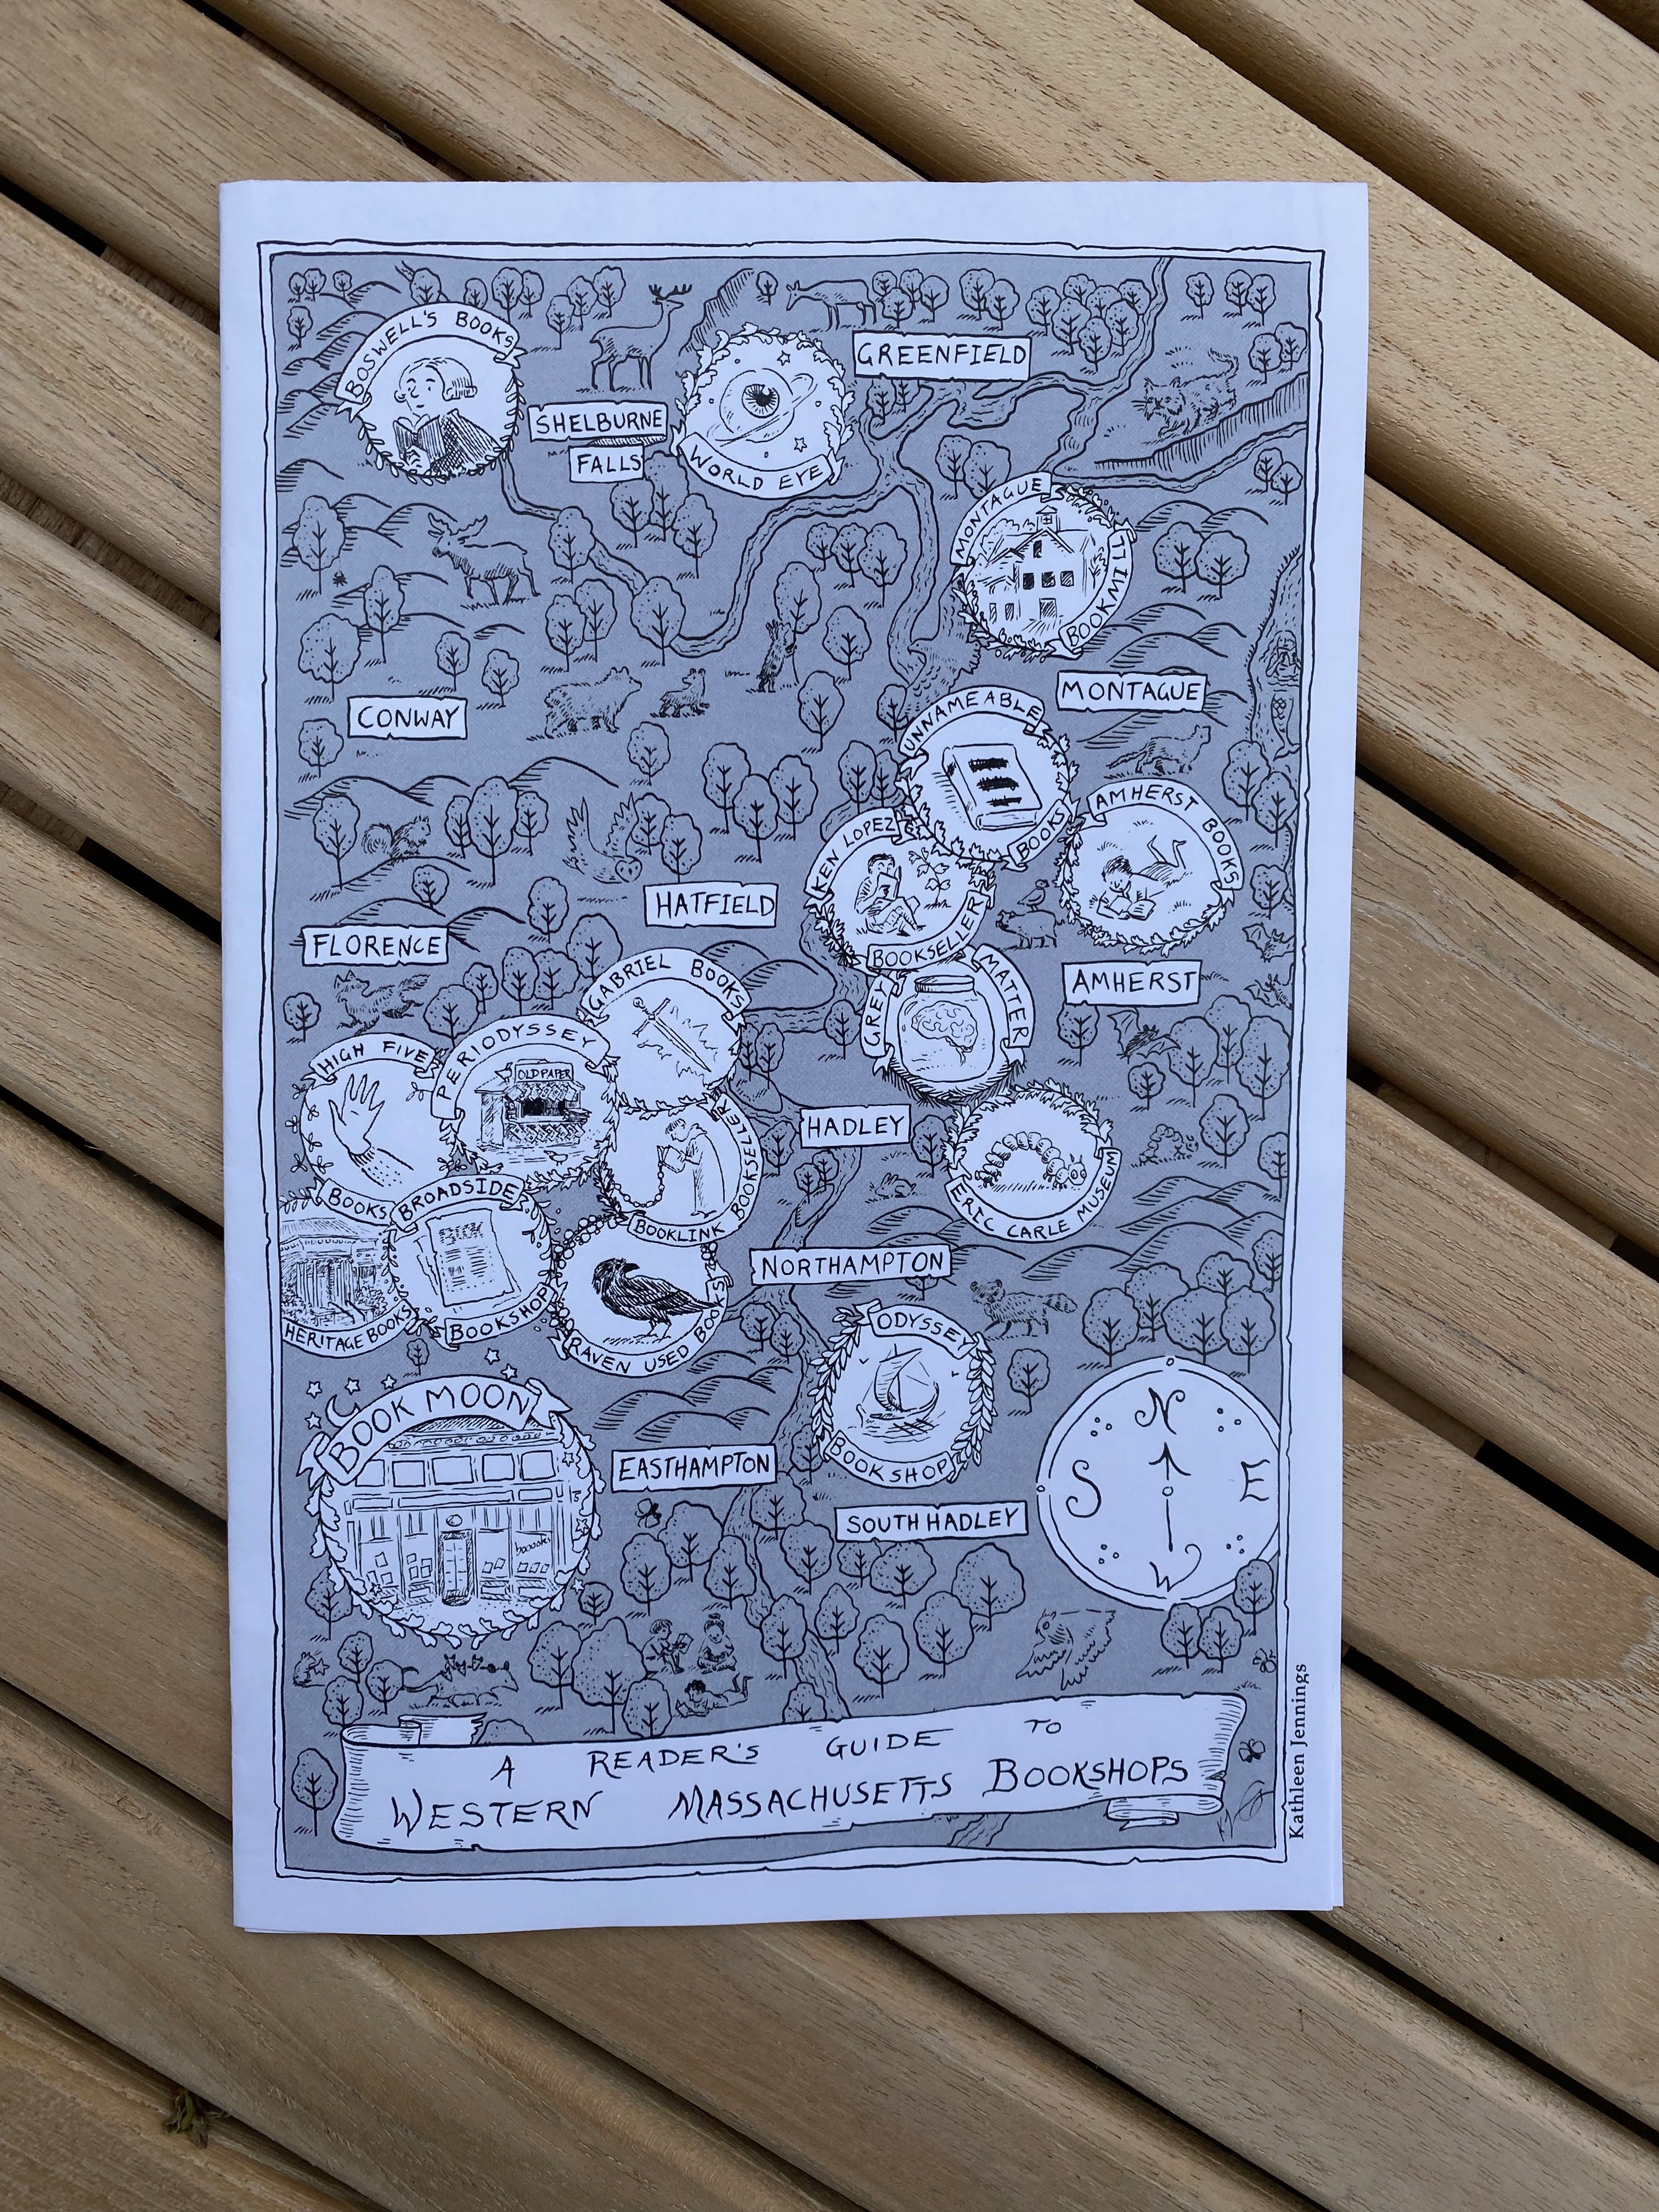 BOSWELL'S BOOKS
GREENFIELD
SHELBURNE
FALLS
WORLD EYE
MONTAGUE
BOOKMILL
MONTAGUE
CONWAY
UNNAMEABLE
BOOKS
AMHERST BOOKS
KEN LOPEZ
BOOKSELLER
HATFIELD
FLORENCE
AMHERST
GABRIEL BOOKS
GREY MATTER
HIGH FIVE
BOOKS
PERIODYSSEY
OLD PAPER
HADLEY
BOOKLINK BOOKSELLER
BROADSIDE
BOOKSHOP
ERIC CARLE MUSEUM
HERITAGE BOOKS
RAVEN USED BOOKS
NORTHAMPTON
ODYSSEY
BOOKSHOP
BOOK MOON
EASTHAMPTON
SOUTH HADLEY
N
S
E
W
A READER'S GUIDE TO
WESTERN MASSACHUSETTS BOOKSHOPS
Kathleen Jennings